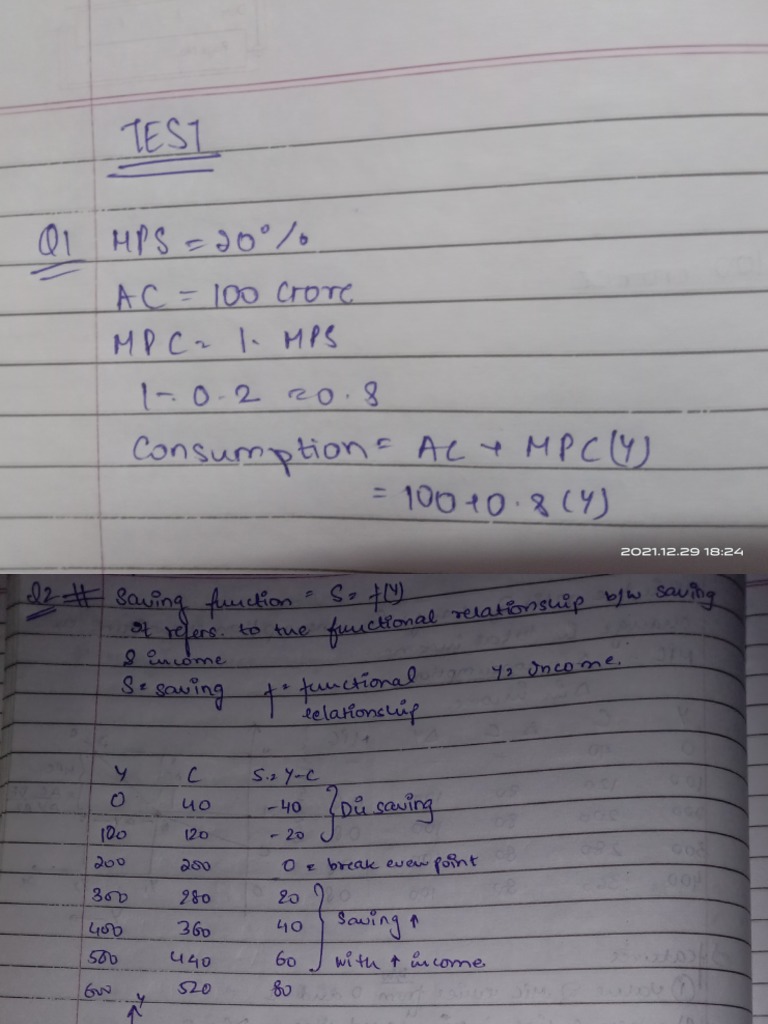 TEST
Q1 MPS = 20%
AC = 100 Crore
MPC = 1 - MPS
1 - 0.2 = 0.8
Consumption = AC + MPC(Y)
= 100+0.8 (Y)
2021.12.29 18:24
Q2 # Saving function = S = f(Y)
It refers to the functional relationship b/w saving
& income
S = saving f = functional Y = income.
relationship
Y C S = Y-C
0 40 -40 } Dis saving
100 120 -20
200 200 0 = break even point
300 280 20
400 360 40 } Saving ↑
500 440 60 with ↑ income
600 520 80
Y